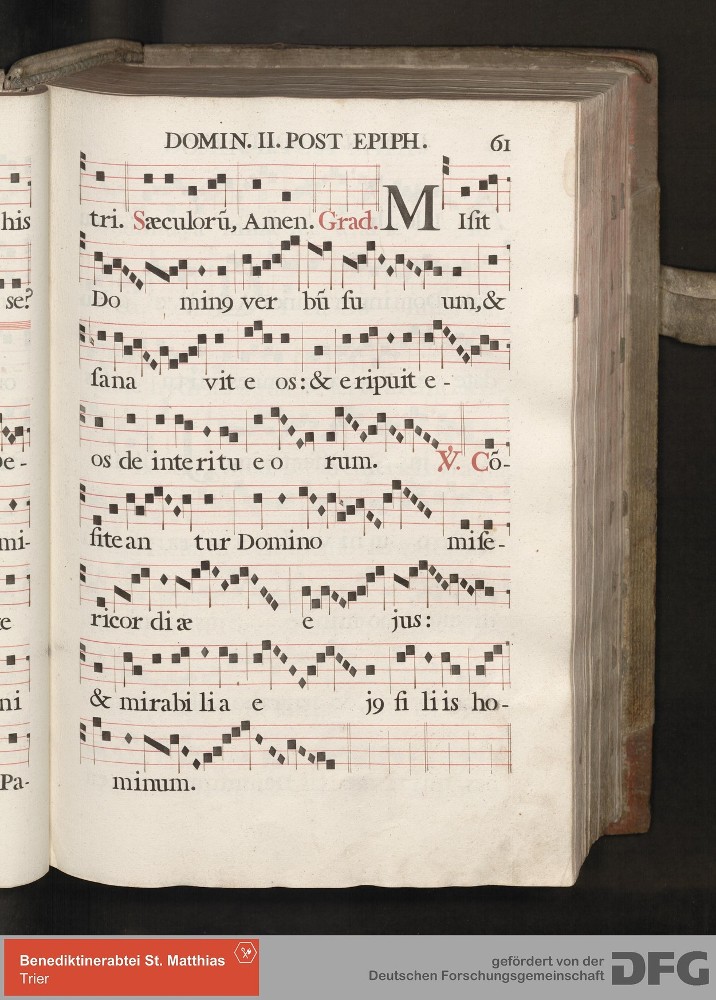 DOMIN. II. POST EPIPH. 61
his
tri. Sæculorũ, Amen. Grad. MIſit
se?
Do minꝯ ver bũ ſu um, &
ſana vit e os: & e ripuit e-
pe-
os de interitu e o rum. ℣. Cõ-
mi-
fitean tur Domino miſe-
ricor di æ e jus:
ni
& mirabi lia e jꝯ fi liis ho-
Pa-
minum.
Benediktinerabtei St. Matthias
Trier
gefördert von der
Deutschen Forschungsgemeinschaft
DFG